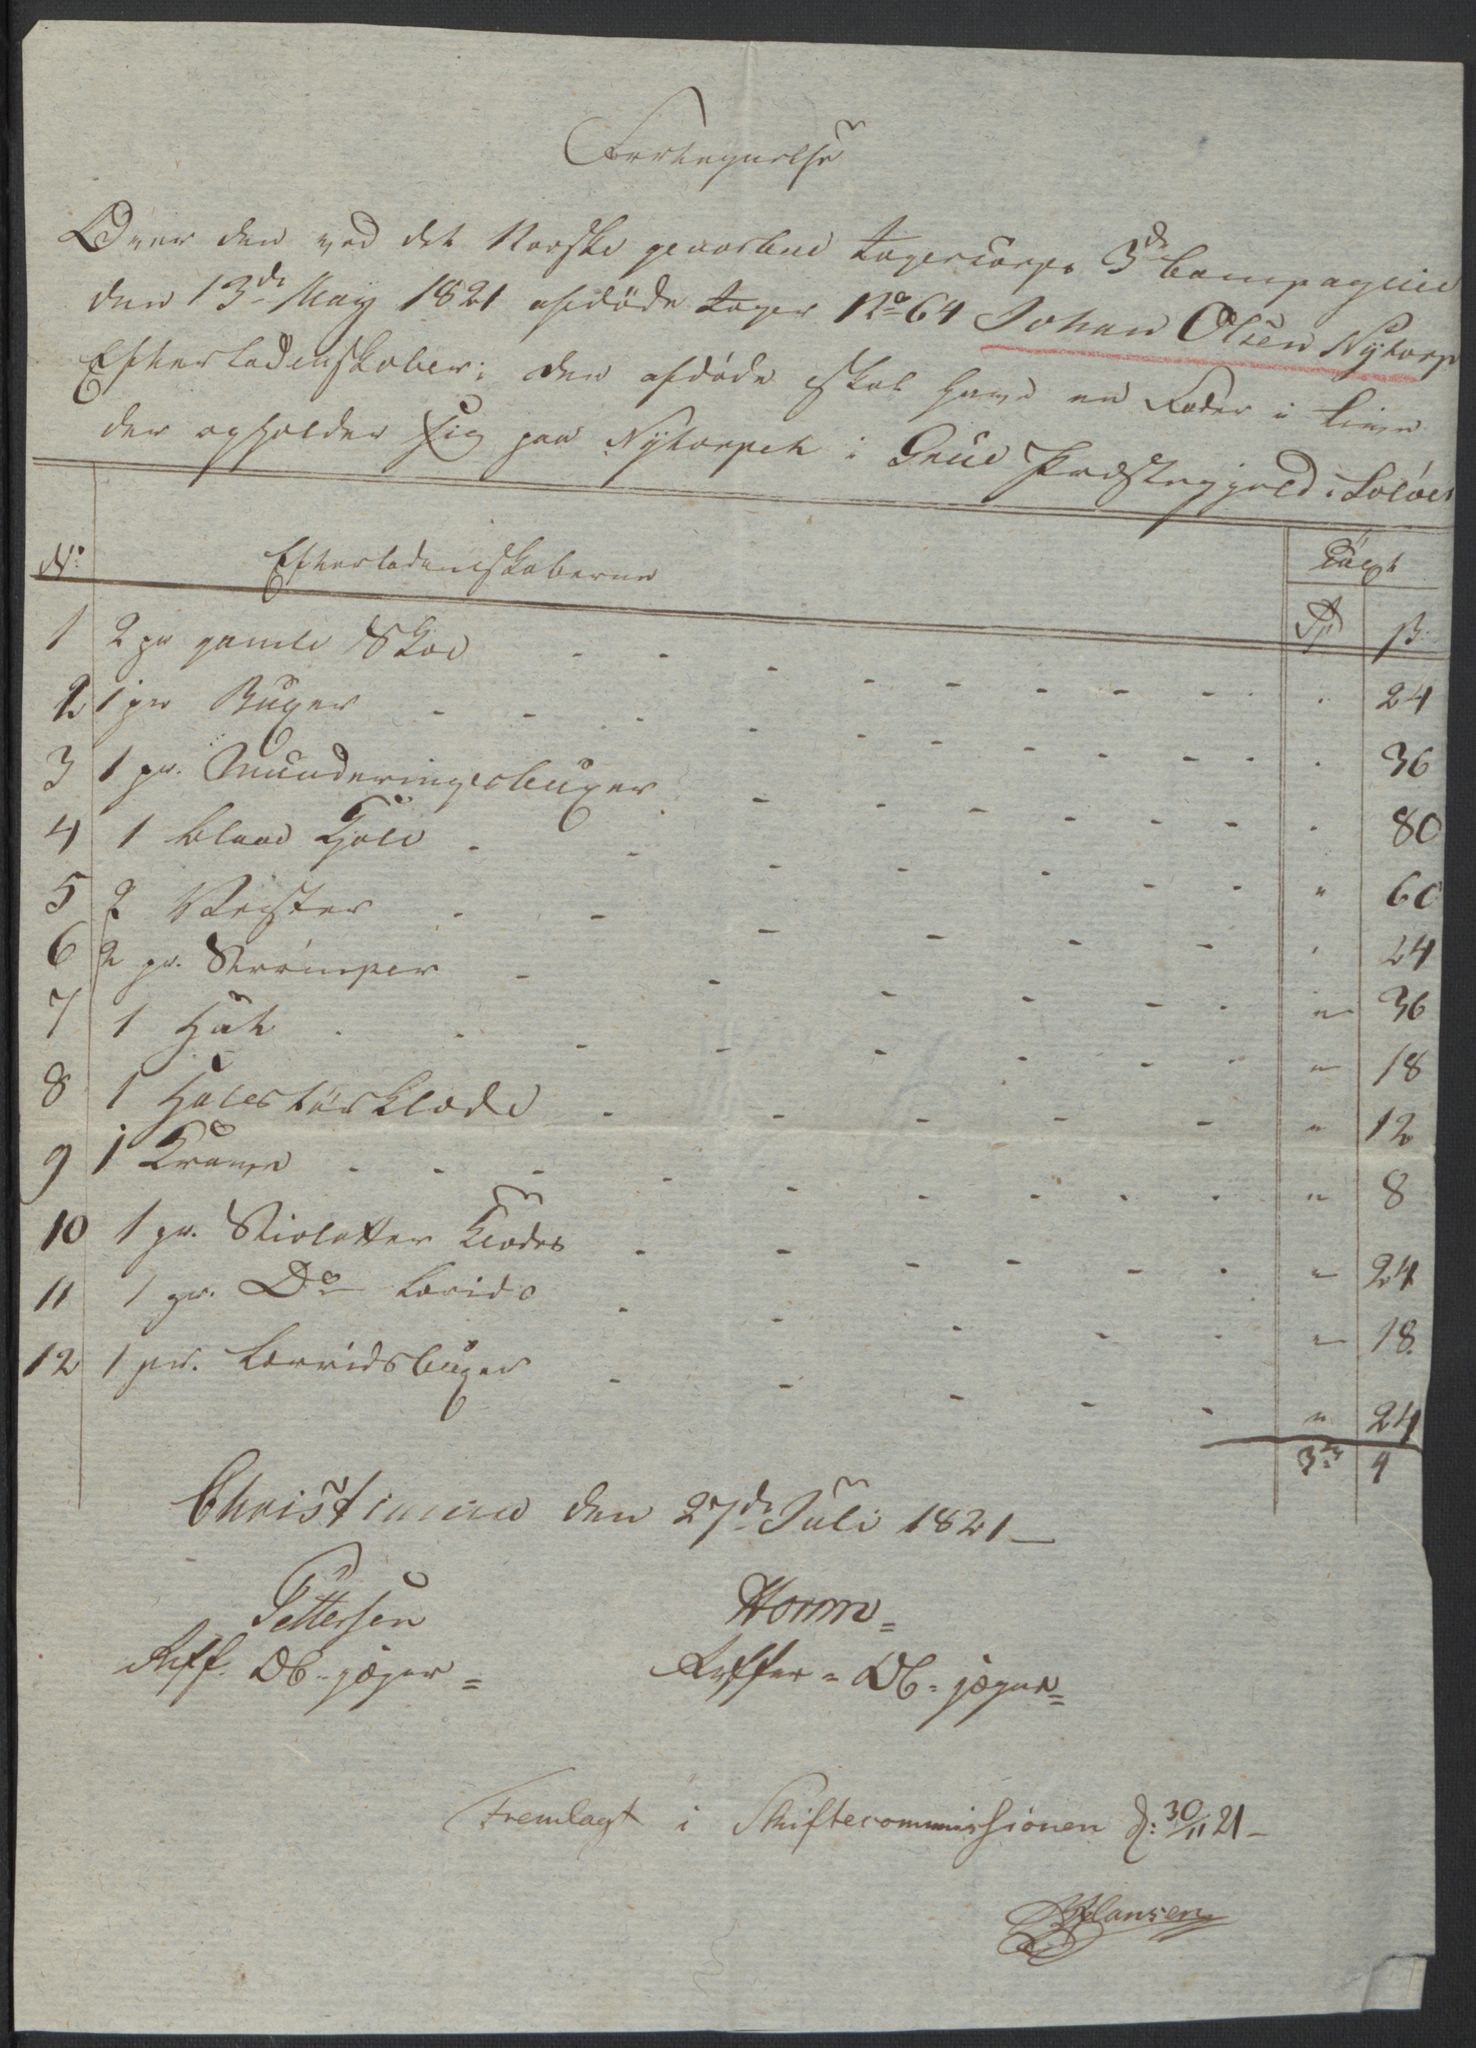 Fortegnelse
Over den ved det Norske gevorbne Jægercorps 3de Compagnie
den 13de May 1821 afdöde Jæger No 64 Johan Olsen Nÿtorp
Efterladenskaber; den afdöde skal have en Fader i Live
der opholder sig paa Nÿtorpet i Grue Præstegjeld i Solöer
No Efterladenskaberne Taxt
Spd ß
1 2 pr gamle Skoe - - - " 24
2 1 pr Buxer - - - " 36
3 1 pr. Munderingsbuxer - - - " 80
4 1 blaae Kjole - - - " 60
5 2 Vester - - - " 24
6 2 pr. Strömper - - - " 36
7 1 Hat - - - " 18
8 1 Halstörklæde - - - " 12
9 1 Krave - - - " 8
10 1 pr. Stioletter Klædes - - - " 24
11 1 pr. Do Lærids - - - " 18
12 1 pr. Lærridsbuxer - - - " 24
3 4
Christiania den 27de Juli 1821 —
Pettersen Horm
Ob-jæger = Ob-jæger =
Fremlagt i Skiftecommissionen d: 30/11 21 —
Hansen